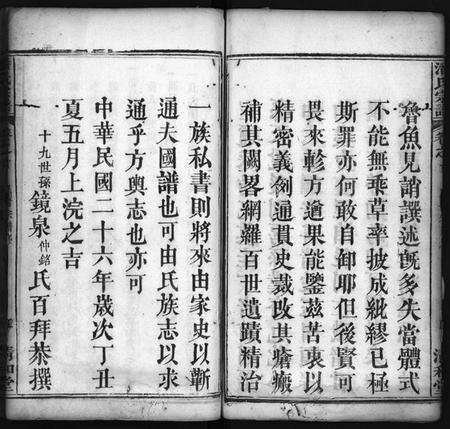 魯魚見誚譔述旣多失當體式
不能無乖草率披成紕繆已極
斯罪亦何敢自卸耶但後賢可
畏來軫方遒果能鑒茲苦衷以
精密義例通貫史裁改其瘡瘢
補其闕畧網羅百世遺蹟精治
一族私書則將來由家史以蘄
通夫國譜也可由氏族志以求
通乎方輿志也亦可
中華民國二十六年歲次丁丑
夏五月上浣之吉
十九世孫鏡泉仲銘氏百拜恭撰